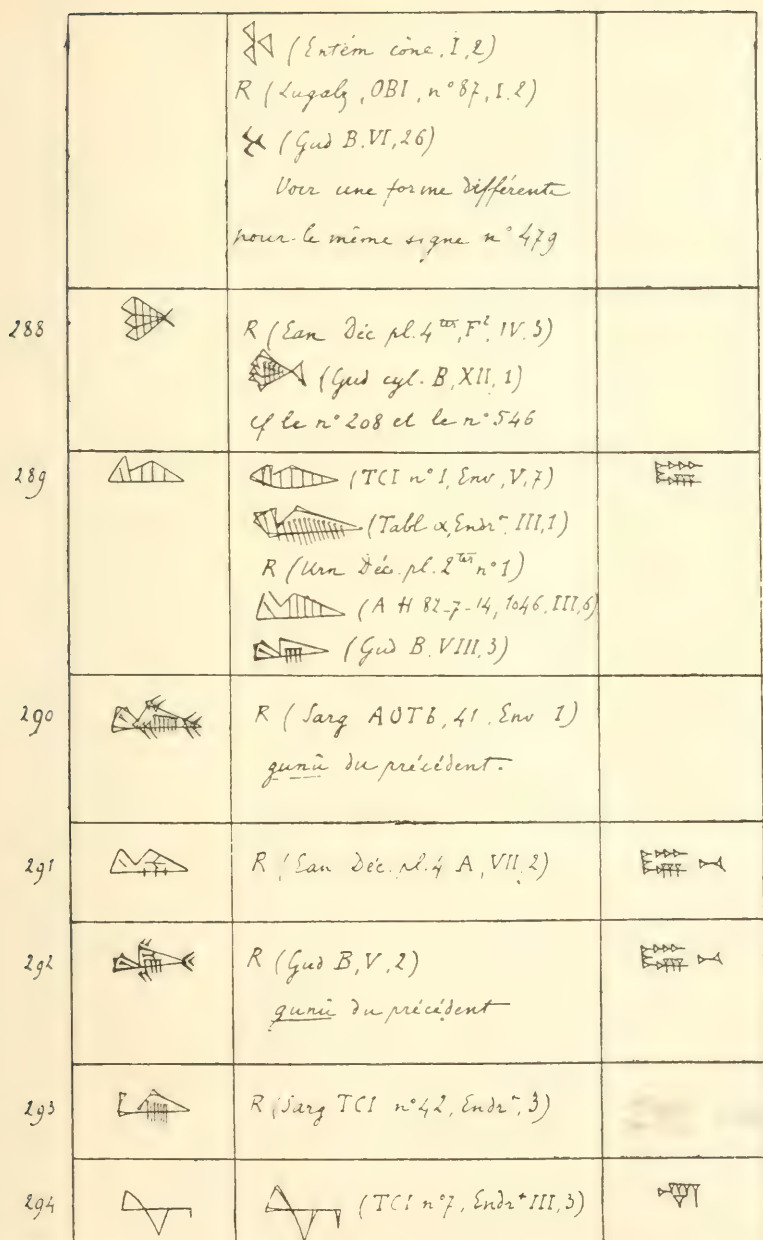 (Entém cône, I, 2)
R (Lugalz, OBI, n° 87, I. 2)
(Gud B. VI, 26)
Voir une forme différente
pour le même signe n° 479
288 R (Ean Déc pl. 4ter, F², IV. 3)
(Gud cyl. B, XII, 1)
cf le n° 208 et le n° 546
289 (TCI n° 1, Env, V, 7)
(Tabl α, Endrt, III, 1)
R (Urn Déc. pl. 2ter n° 1)
(A H 82-7-14, 1046, III, 6)
(Gud B. VIII, 3)
290 R (Sarg AOTb, 41, Env 1)
gunû du précédent.
291 R (Ean Déc. pl. 4 A, VII, 2)
292 R (Gud B, V, 2)
gunû du précédent
293 R (Sarg TCI n° 42, Endrt, 3)
294 (TCI n° 7, Endrt III, 3)